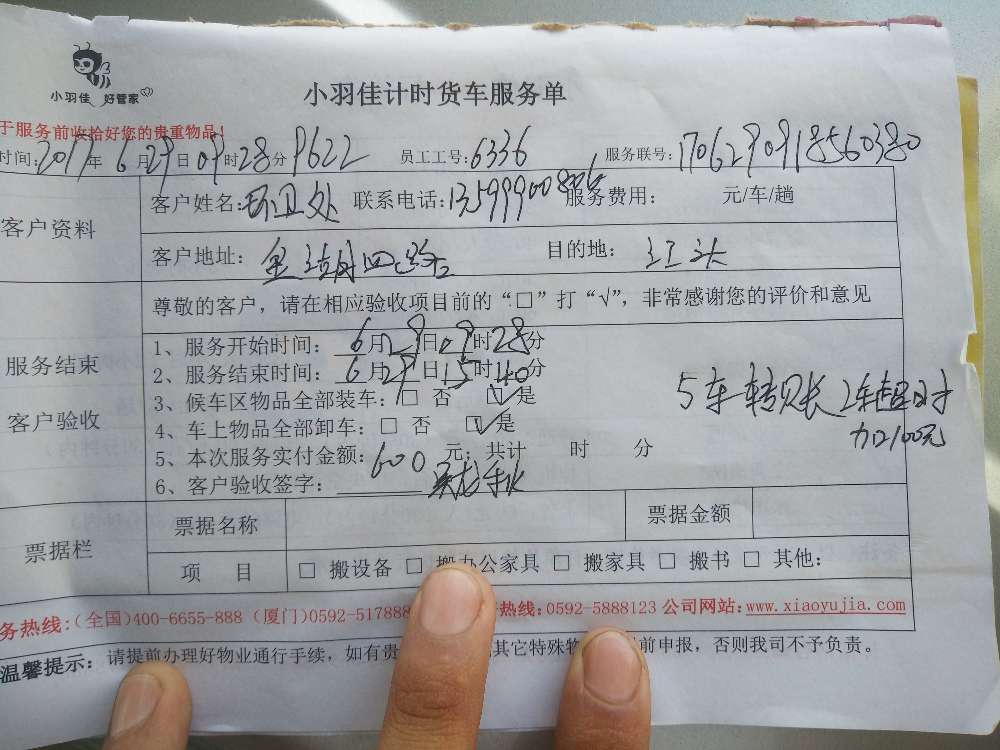 小羽佳 好管家
小羽佳计时货车服务单
于服务前收拾好您的贵重物品!
时间:2017年6月29日09时28分 9622 员工工号:6336 服务联号:1706290918560380
客户资料
客户姓名:环卫处 联系电话:13599900806 服务费用: 元/车/趟
客户地址: 金湖四路 目的地: 江头
尊敬的客户，请在相应验收项目前的“□”打“√”，非常感谢您的评价和意见
服务结束
客户验收
1、服务开始时间: 6月29日09时28分
2、服务结束时间: 6月29日15时40分
3、候车区物品全部装车:□ 否 ☑是
4、车上物品全部卸车:□ 否 ☑是
5、本次服务实付金额:600元; 共计 时 分
6、客户验收签字:
5车转账 2车超时
加2100元
票据栏
票据名称 票据金额
项 目 □ 搬设备 □ 搬办公家具 □ 搬家具 □ 搬书 □ 其他:
务热线:(全国)400-6655-888 (厦门)0592-517888 热线:0592-5888123 公司网站:www.xiaoyujia.com
温馨提示: 请提前办理好物业通行手续，如有贵 其它特殊物 前申报，否则我司不予负责。